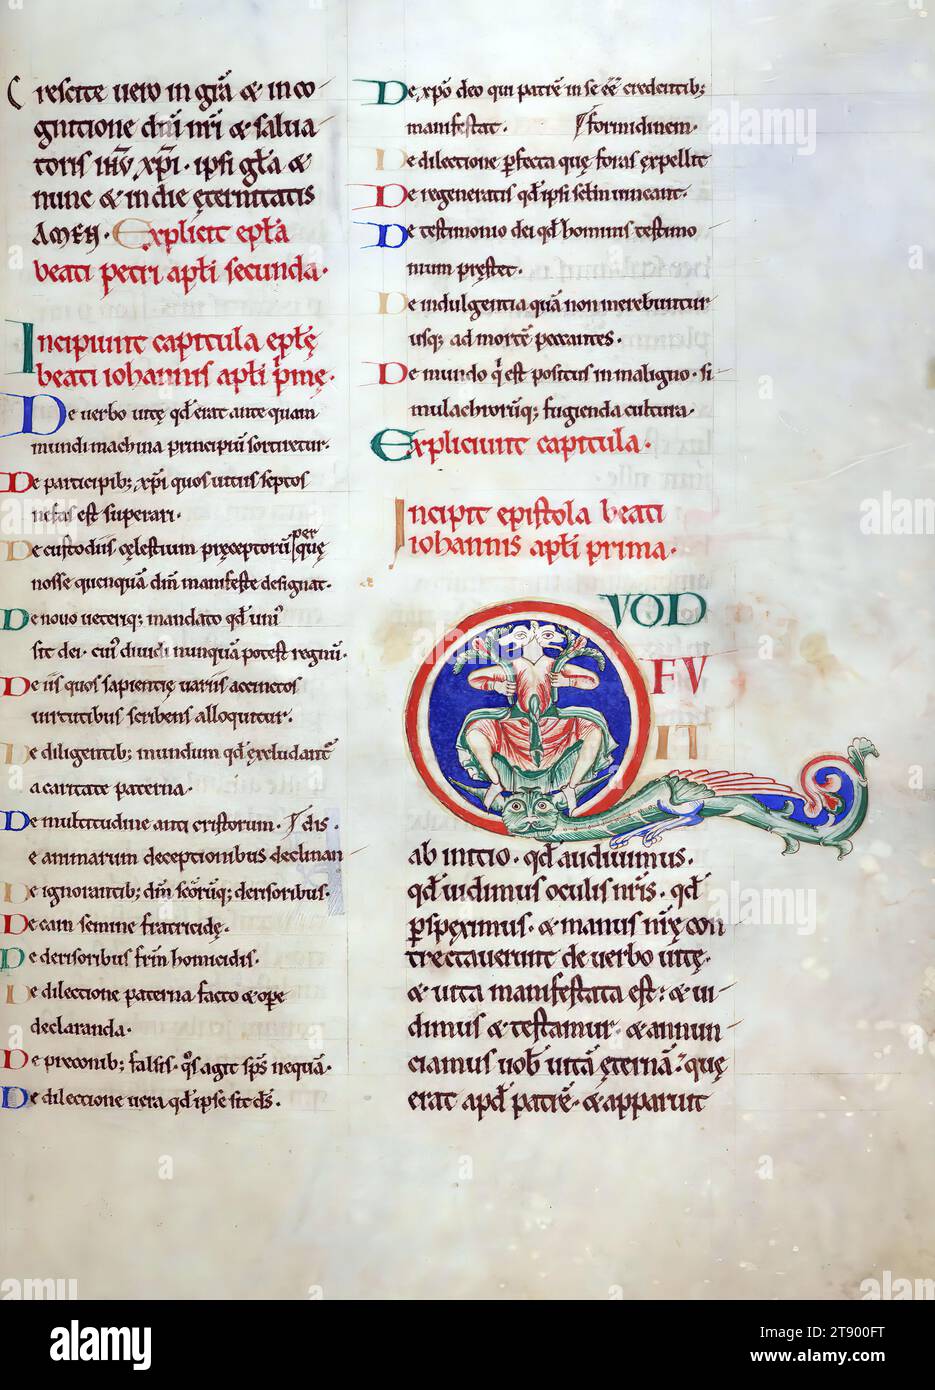 Crescite vero in gr̄a & in co
gnitione dn̄i nr̄i & salva
toris ih̄u xp̄i · ipsi gl̄a &
nunc & in die ęternitatis
AMEN · Explicit epl̄a
beati petri apl̄i secunda ·
Incipiunt capitula epl̄ę
beati iohannis apl̄i p̄mę ·
De verbo vitę qd̄ erat ante quam
mundi machina principiū sortiretur ·
De participib; xp̄i quos vitiis septos
nefas est superari ·
De custodiis cęlestium pręceptorū per quę
nosse quenquā dn̄m manifeste designat ·
De novo veteriq; mandato qd̄ uni'
sit dei · cui' dividi nunquā potest regnū ·
De iis quos sapientię variis accinctos
virtutibus scribens alloquitur ·
De diligentib; mundum qd̄ excludant'
a caritate paterna ·
De multitudine anti cristorum · dis ·
e animarum deceptionibus declinan
De ignorantib; dn̄m scōrūq; derisoribus ·
De cain semine fratricidę ·
De derisoribus frm̄ homicidis ·
De dilectione paterna facto & ope
declaranda ·
De preconib; falsis · qōs agit sps̄ nequā ·
De dilectione vera qd̄ ipse sit ds̄ ·
De xp̄o deo qui patrē in se ēē credentib;
manifestat · formidinem ·
De dilectione pfecta quę foras expellit
De regeneratis qd̄ ipsi se sin
De testimonio dei qd̄ hominis testimo
nium pręstet ·
De indulgentia quā non merebuntur
usq; ad mortē peccantes ·
De mundo q̄ est positus in maligno · si
mulachrorūq; fugienda cultura ·
Expliciunt capitula ·
Incipit epistola beati
iohannis apl̄i prima ·
QVOD
FV
IT
ab initio · qd̄ audivimus ·
qd̄ vidimus oculis nr̄is · qd̄
pspeximus · & manus nr̄ę con
trectaverunt de verbo vitę ·
& vita manifestata est : & vi
dimus & testamur · & annun
ciamus vob̄ vitā ęternā · quę
erat apd̄ patrē · & apparuit
alamy
Image ID: 2T900FT
www.alamy.com